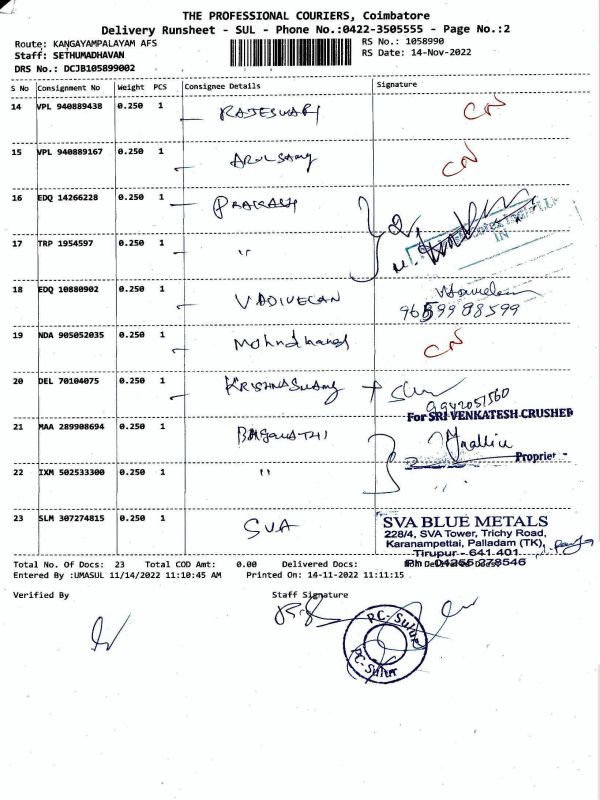 THE PROFESSIONAL COURIERS, Coimbatore
Delivery Runsheet - SUL - Phone No.:0422-3505555 - Page No.:2
Route: KANGAYAMPALAYAM AFS
RS No.: 1058990
Staff: SETHUMADHAVAN
RS Date: 14-Nov-2022
DRS No.: DCJB105899002
S No Consignment No Weight PCS Consignee Details Signature
14 VPL 940889438 0.250 1 RAJESWARI CN
15 VPL 940889167 0.250 1 ARULSAMY CN
16 EDQ 14266228 0.250 1 PRAKASH
17 TRP 1954597 0.250 1 "
18 EDQ 10880902 0.250 1 VADIVELAN
9659998599
19 NDA 905052035 0.250 1 CN
20 DEL 70104075 0.250 1 KRISHNASWAMY
9942051560
For SRI VENKATESH CRUSHER
21 MAA 289908694 0.250 1
Proprietor
22 IXM 502533300 0.250 1 "
23 SLM 307274815 0.250 1 SVA
SVA BLUE METALS
228/4, SVA Tower, Trichy Road,
Karanampettai, Palladam (TK),
Tirupur - 641 401
Ph : 04255 278546
Total No. Of Docs: 23 Total COD Amt: 0.00 Delivered Docs:
Entered By :UMASUL 11/14/2022 11:10:45 AM Printed On: 14-11-2022 11:11:15
Verified By Staff Signature
PC-Sulur
PC-Sulur